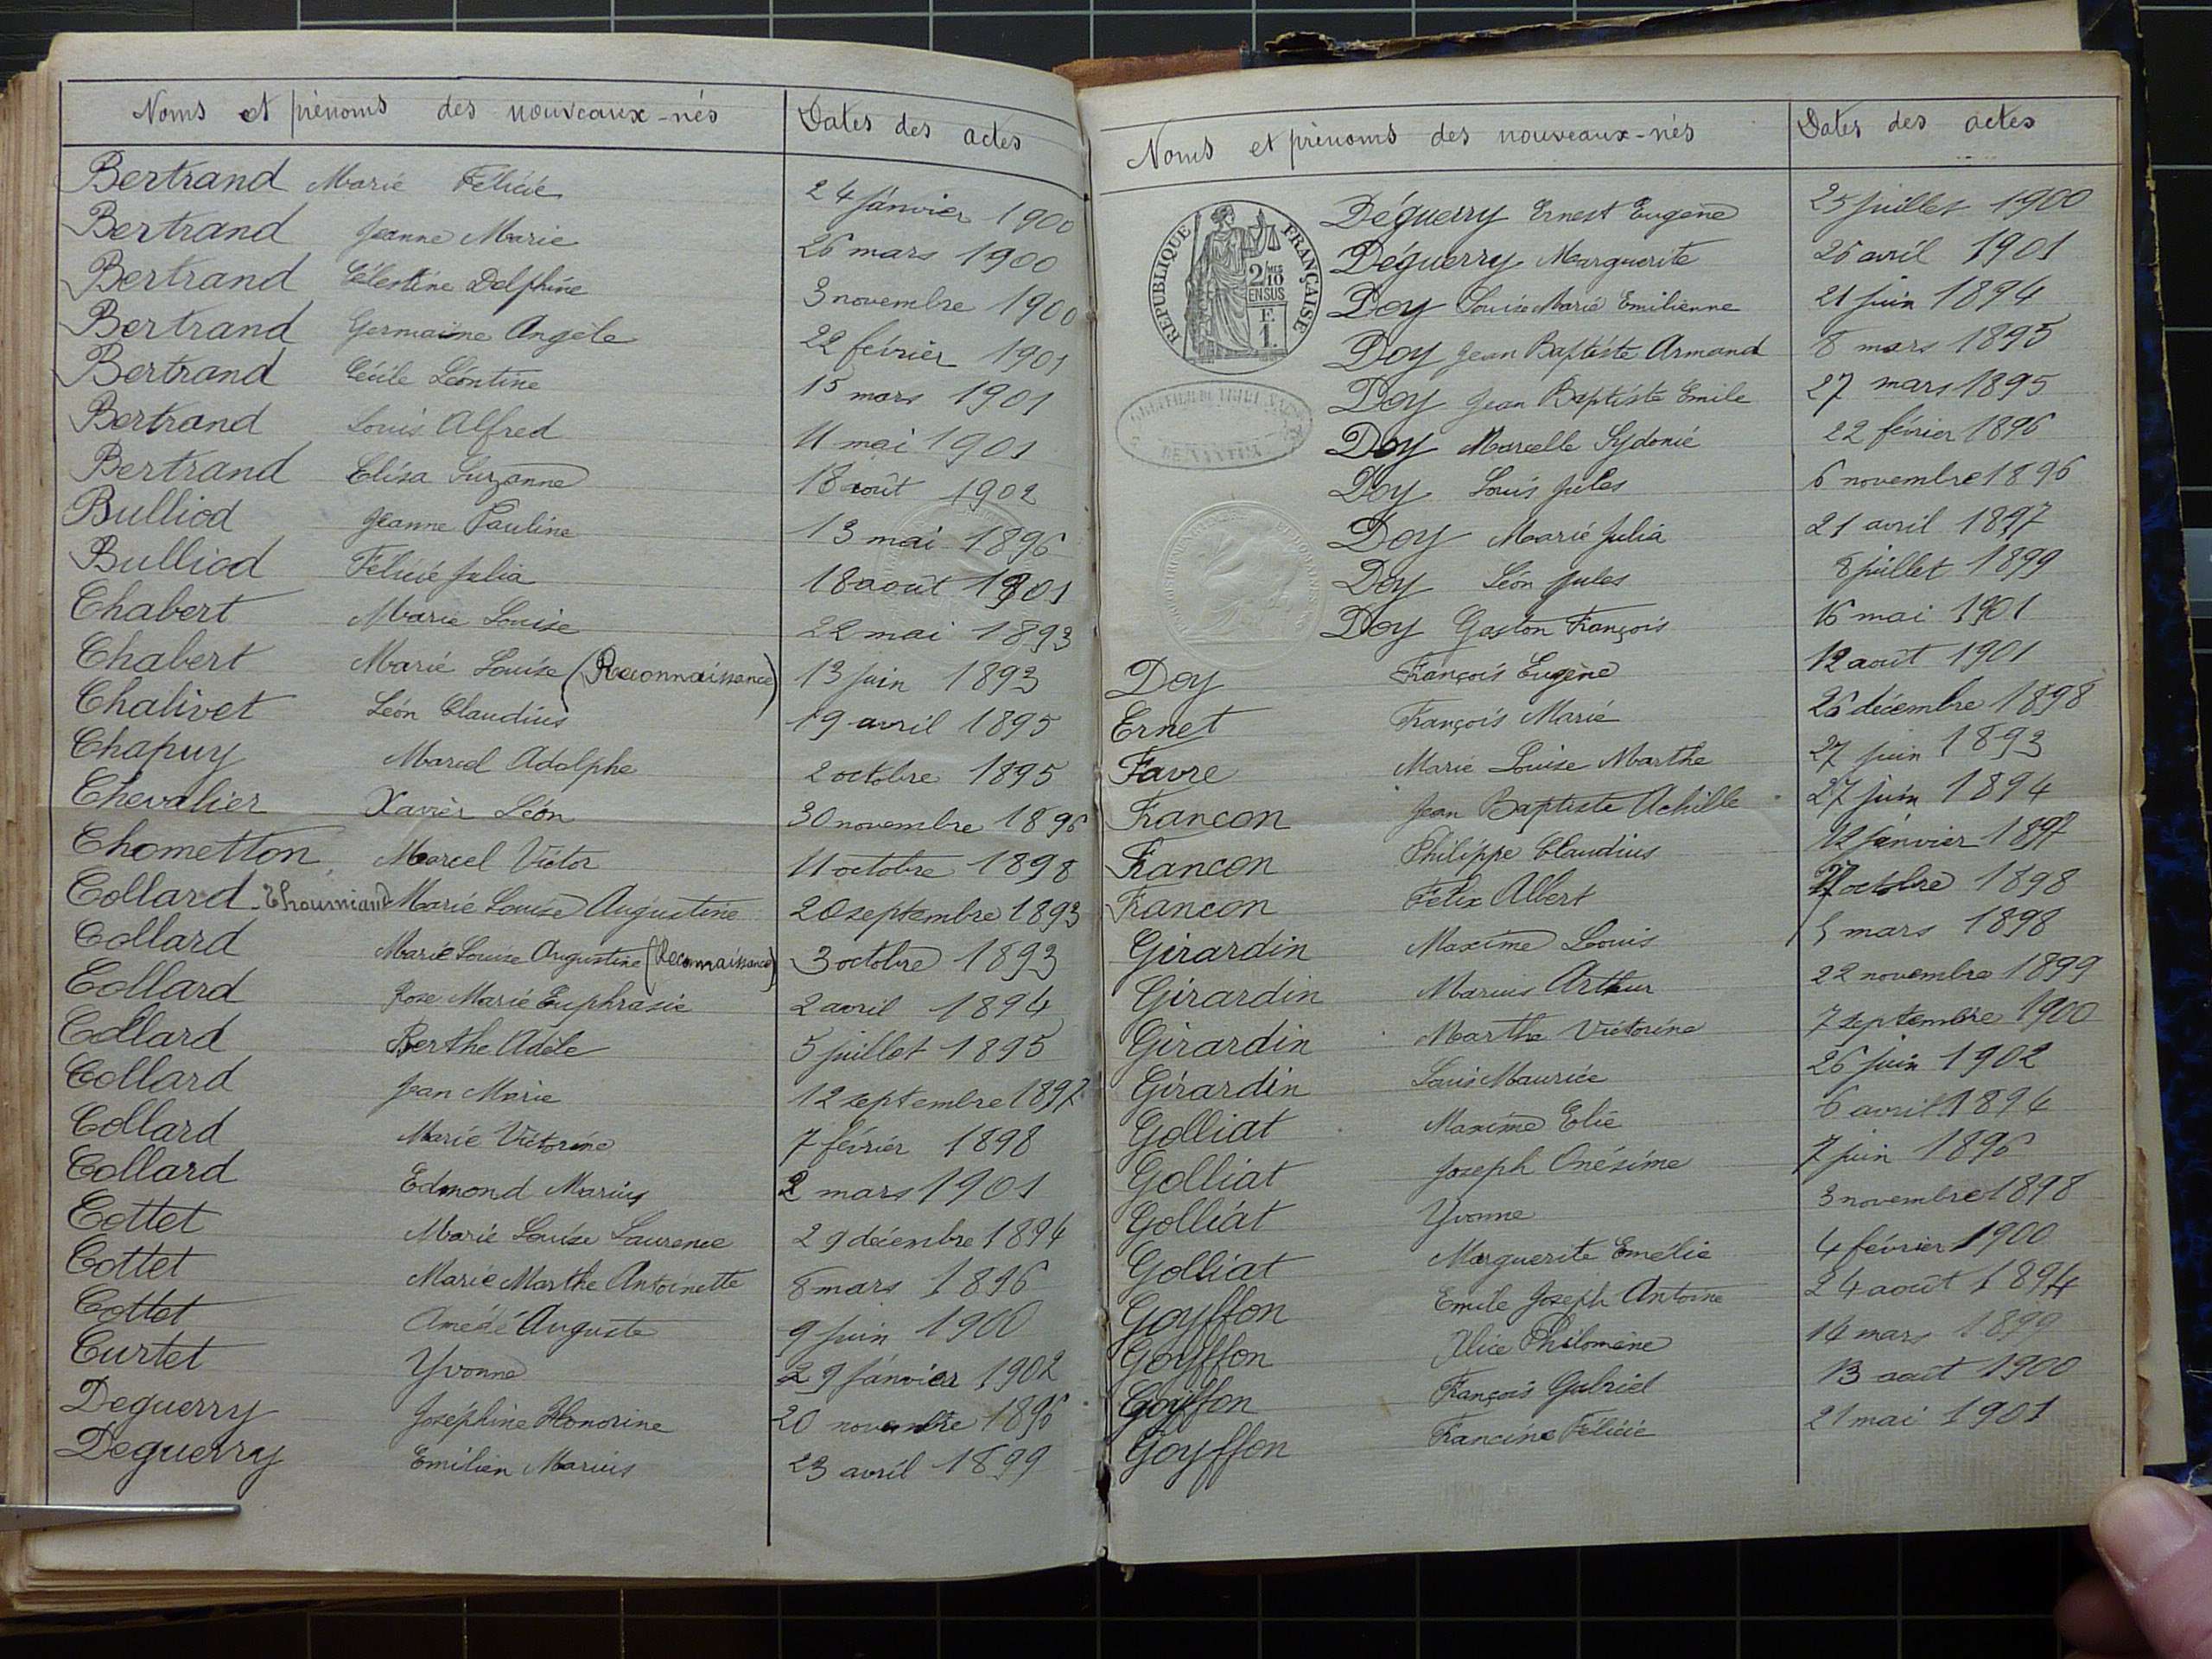 Noms et prénoms des nouveaux-nés Dates des actes
Bertrand Marie Félicie 24 janvier 1900
Bertrand Jeanne Marie 26 mars 1900
Bertrand Célestine Delphine 3 novembre 1900
Bertrand Germaine Angèle 22 février 1901
Bertrand Cécile Léontine 15 mars 1901
Bertrand Louis Alfred 11 mai 1901
Bertrand Elisa Suzanne 18 août 1902
Bulliod Jeanne Pauline 13 mai 1896
Bulliod Félicie Julia 18 août 1901
Chabert Marie Louise 22 mai 1893
Chabert Marie Louise (Reconnaissance) 13 juin 1893
Chalivet Léon Claudius 19 avril 1895
Chapuy Marcel Adolphe 2 octobre 1895
Chevalier Xavier Léon 30 novembre 1896
Chometton Marcel Victor 11 octobre 1898
Collard - Thourniand Marie Louise Augustine 20 septembre 1893
Collard Marie Louise Augustine (Reconnaissance) 3 octobre 1893
Collard Rose Marie Euphrasie 2 avril 1894
Collard Berthe Adèle 5 juillet 1895
Collard Jean Marie 12 septembre 1897
Collard Marie Victorine 7 février 1898
Collard Edmond Marius 2 mars 1901
Cottet Marie Louise Laurence 29 décembre 1894
Cottet Marie Marthe Antoinette 8 mars 1896
Cottet Amédé Auguste 9 juin 1900
Curtet Yvonne 29 janvier 1902
Deguerry Joséphine Honorine 20 novembre 1896
Deguerry Emilien Marius 23 avril 1899
Noms et prénoms des nouveaux-nés Dates des actes
RÉPUBLIQUE FRANÇAISE
2/10
EN SUS
F.
1.
DE NANTUA
Déguerry Ernest Eugène 25 juillet 1900
Déguerry Marguerite 26 avril 1901
Doy Louise Marie Emilienne 21 juin 1894
Doy Jean Baptiste Armand 8 mars 1895
Doy Jean Baptiste Emile 27 mars 1895
Doy Marcelle Sydonie 22 février 1896
Doy Louis Jules 6 novembre 1896
Doy Marie Julia 21 avril 1897
Doy Léon Jules 8 juillet 1899
Doy Gaston François 16 mai 1901
Doy François Eugène 12 août 1901
Ernet François Marie 26 décembre 1898
Favre Marie Louise Marthe 27 juin 1893
Francon Jean Baptiste Achille 27 juin 1894
Francon Philippe Claudius 12 janvier 1897
Francon Félix Albert octobre 1898
Girardin Maxime Louis 5 mars 1898
Girardin Marius Arthur 22 novembre 1899
Girardin Marthe Victorine 7 septembre 1900
Girardin Louis Maurice 26 juin 1902
Golliat Maxime Elie 6 avril 1894
Golliat Joseph Onésime 7 juin 1896
Golliat Yvonne 3 novembre 1898
Golliat Marguerite Emélie 4 février 1900
Goyffon Emile Joseph Antoine 24 août 1894
Goyffon Alice Philomène 14 mars 1899
Goyffon François Gabriel 13 août 1900
Goyffon Francine Félicie 21 mai 1901